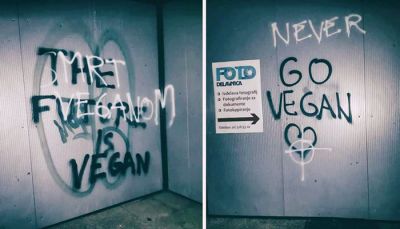 SMRT
VEGANOM
IS
VEGAN
NEVER
GO
VEGAN
FOTO
DELAVNICA
• Izdelava fotografij
• Fotografiranje za
dokumente
• Fotokopiranje